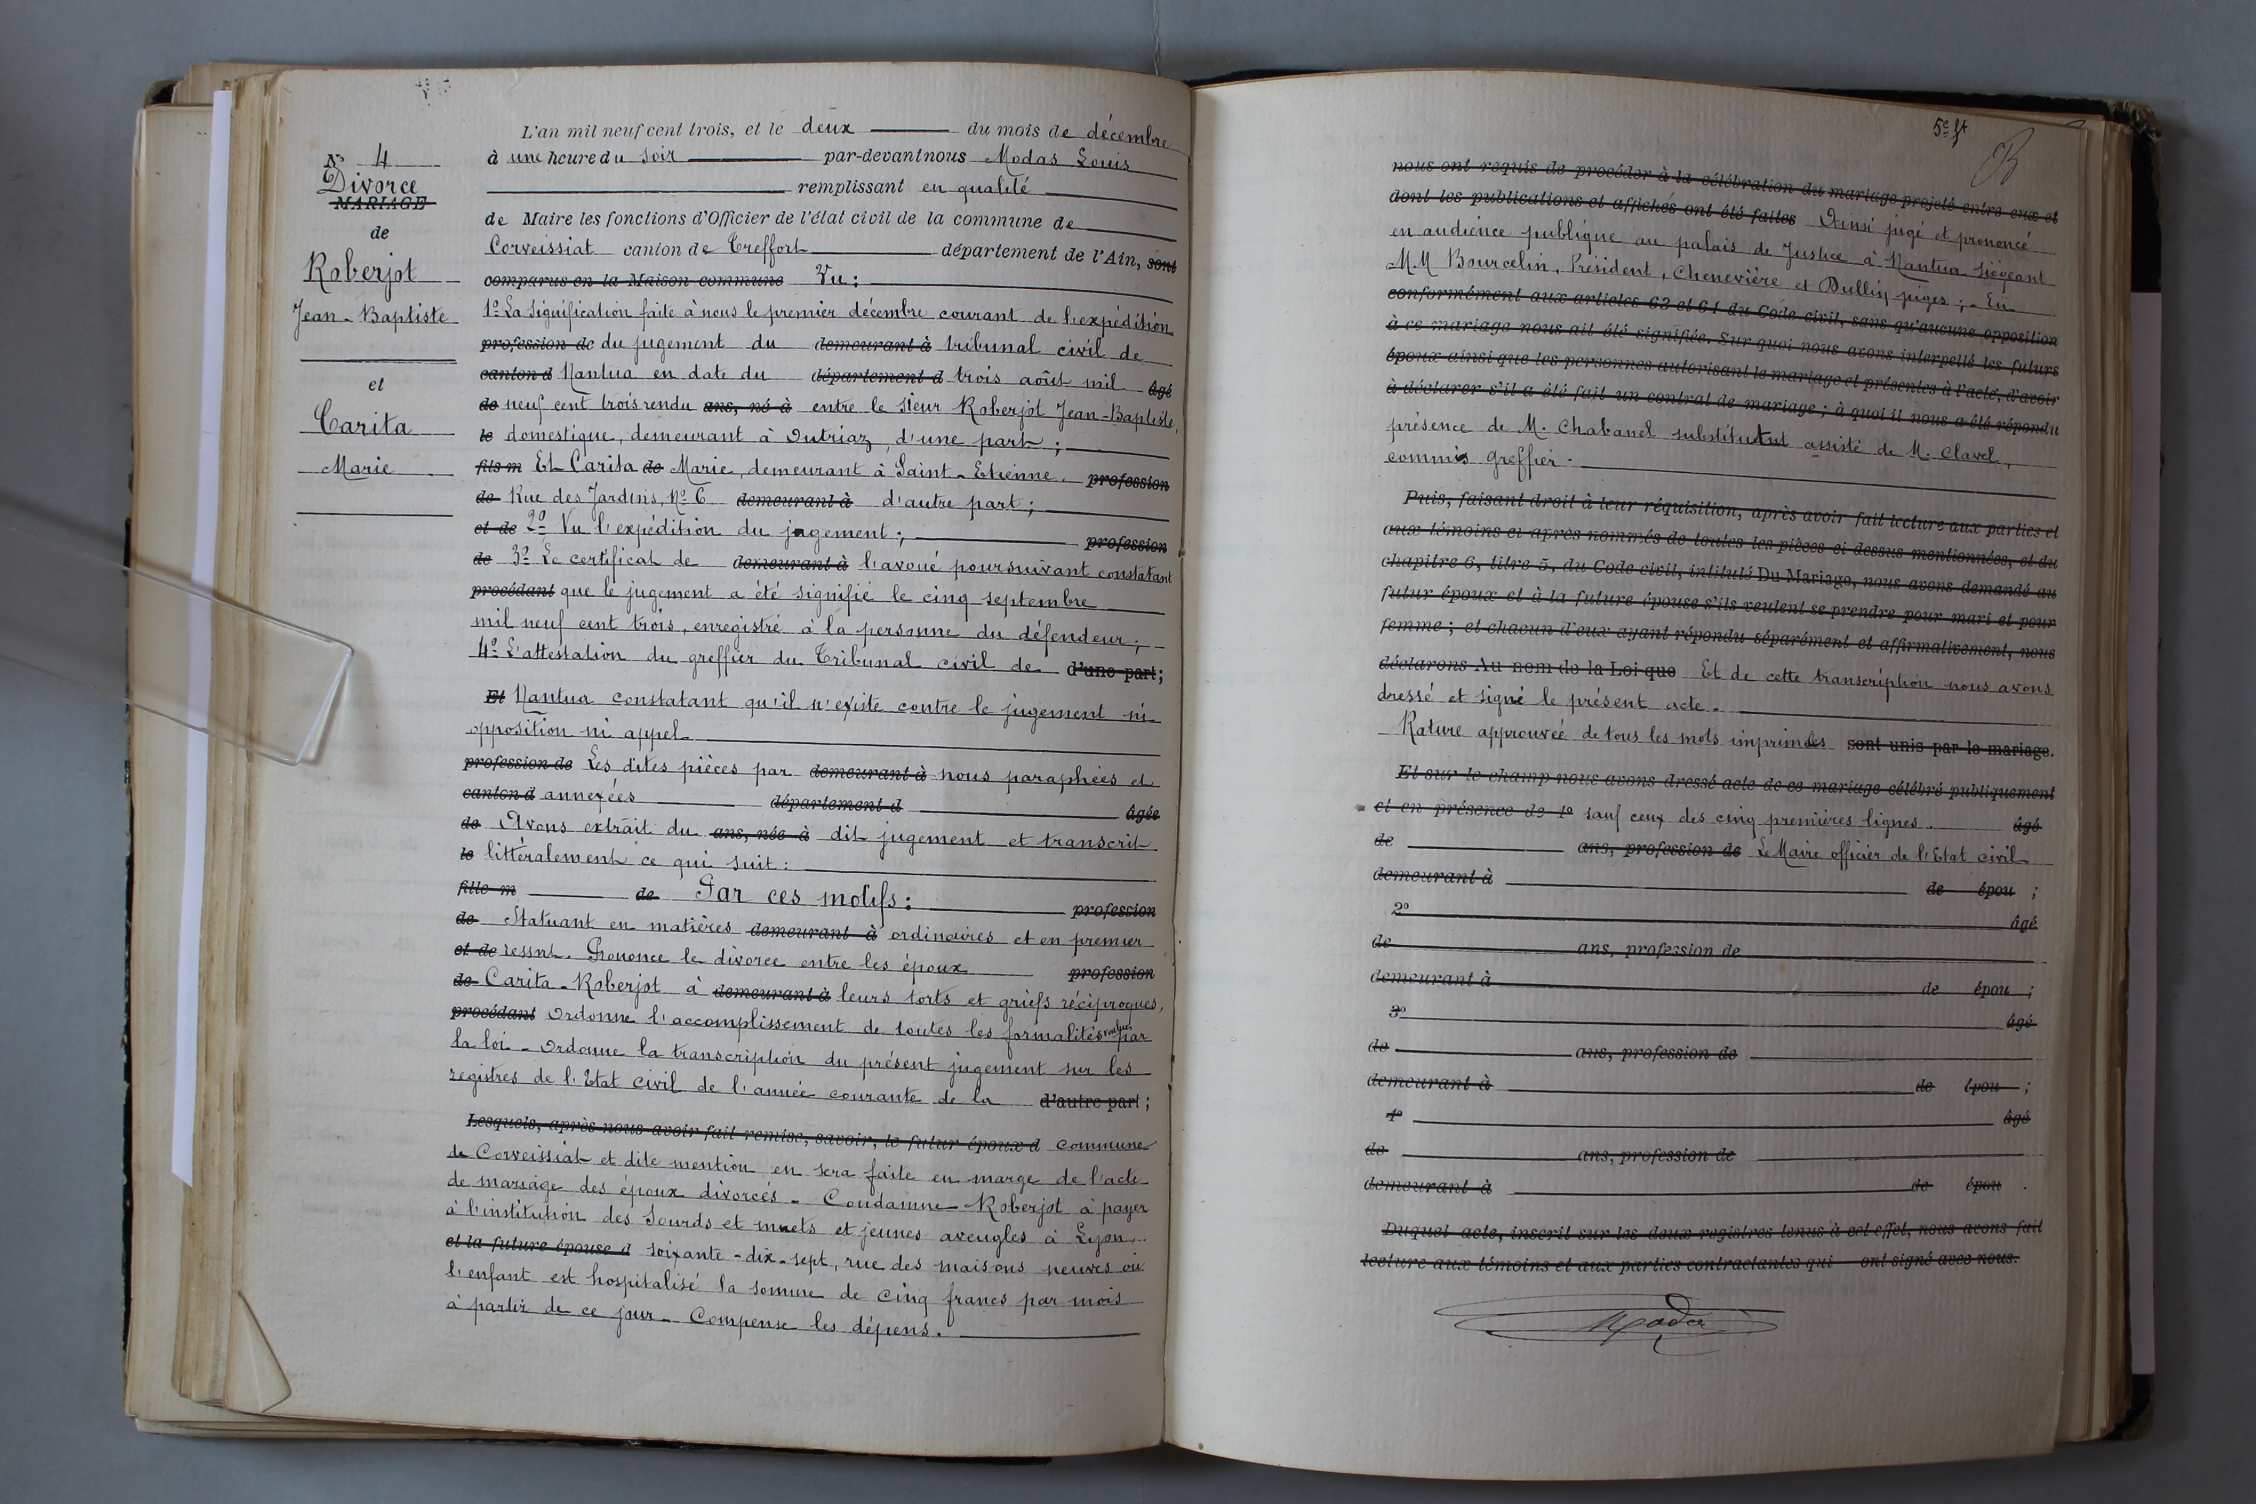 N° 4
Divorce
MARIAGE
de
Roberjot
Jean-Baptiste
et
Carita
Marie
L'an mil neuf cent trois, et le deux du mois de décembre
à une heure du soir par-devant nous Modas Louis
remplissant en qualité
de Maire les fonctions d'Officier de l'état civil de la commune de
Corveissiat canton de Treffort département de l'Ain, sont
comparus en la Maison commune Vu :
1° La signification faite à nous le premier décembre courant de l'expédition
profession de du jugement du demeurant à tribunal civil de
canton d Nantua en date du département d trois août mil âgé
de neuf cent trois rendu ans, né à entre le sieur Roberjot Jean-Baptiste,
le domestique, demeurant à Outriaz, d'une part ;
fils m Et Carita de Marie, demeurant à Saint-Etienne. profession
de Rue des Jardins, N° 6 demeurant à d'autre part ;
et de 2° Vu l'expédition du jugement ; profession
de 3° Le certificat de demeurant à l'avoué poursuivant constatant
procédant que le jugement a été signifié le cinq septembre
mil neuf cent trois, enregistré à la personne du défendeur ;
4° L'attestation du greffier du Tribunal civil de d'une part ;
Et Nantua constatant qu'il n'existe contre le jugement ni
opposition ni appel
profession de Les dites pièces par demeurant à nous paraphées et
canton d annexées département d âgée
de Avons extrait du ans, née à dit jugement et transcrit
le littéralement ce qui suit :
fille m de Par ces motifs : profession
de Statuant en matières demeurant à ordinaires et en premier
et de ressort. Prononce le divorce entre les époux profession
de Carita-Roberjot à demeurant à leurs torts et griefs réciproques,
procédant Ordonne l'accomplissement de toutes les formalités voulues par
la loi - Ordonne la transcription du présent jugement sur les
registres de l'Etat civil de l'année courante de la d'autre part ;
Lesquels, après nous avoir fait remise, savoir, le futur époux d commune
de Corveissiat et dite mention en sera faite en marge de l'acte
de mariage des époux divorcés - Condamne Roberjot à payer
à l'institution des Sourds et muets et jeunes aveugles à Lyon,
et la future épouse d soixante-dix-sept, rue des maisons neuves où
l'enfant est hospitalisé la somme de cinq francs par mois
à partir de ce jour - Compense les dépens.
5e ft
nous ont requis de procéder à la célébration du mariage projeté entre eux et
dont les publications et affiches ont été faites Ainsi jugé et prononcé
en audience publique au palais de Justice à Nantua siégeant
M.M Bourcelin, Président, Chenevière et Dullin juges ; - En
conformément aux articles 63 et 64 du Code civil, sans qu'aucune opposition
à ce mariage nous ait été signifiée. Sur quoi nous avons interpellé les futurs
époux ainsi que les personnes autorisant le mariage et présentes à l'acte, d'avoir
à déclarer s'il a été fait un contrat de mariage ; à quoi il nous a été répondu
présence de M. Chabanel substitutut assisté de M. Clavel,
commis greffier.
Puis, faisant droit à leur réquisition, après avoir fait lecture aux parties et
aux témoins ci après nommés de toutes les pièces ci dessus mentionnées, et du
chapitre 6, titre 5, du Code civil, intitulé Du Mariage, nous avons demandé au
futur époux et à la future épouse s'ils veulent se prendre pour mari et pour
femme ; et chacun d'eux ayant répondu séparément et affirmativement, nous
déclarons Au nom de la Loi que Et de cette transcription nous avons
dressé et signé le présent acte.
Rature approuvée de tous les mots imprimées sont unis par le mariage.
Et sur le champ nous avons dressé acte de ce mariage célébré publiquement
et en présence de 1° sauf ceux des cinq premières lignes. âgé
de ans, profession de Le Maire officier de l'Etat civil
demeurant à de épou ;
2° âgé
de ans, profession de
demeurant à de épou ;
3° âgé
de ans, profession de
demeurant à de épou ;
4° âgé
de ans, profession de
demeurant à de épou .
Duquel acte, inscrit sur les deux registres tenus à cet effet, nous avons fait
lecture aux témoins et aux parties contractantes qui ont signé avec nous.